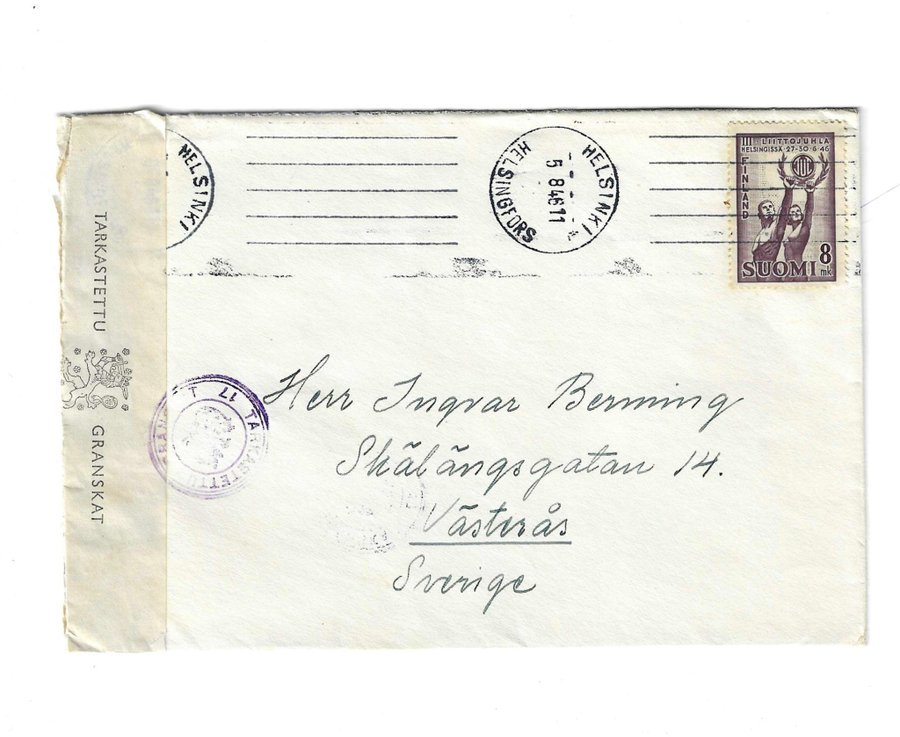 TARKASTETTU
GRANSKAT
HELSINKI
HELSINKI
5 8 46 11
HELSINGFORS
III LIITTOJUHLA
HELSINGISSÄ 27-30.6.46
FINLAND
SUOMI 8 mk
TARKASTETTU
17
Herr Ingvar Berming
Skälängsgatan 14.
Västerås
Sverige